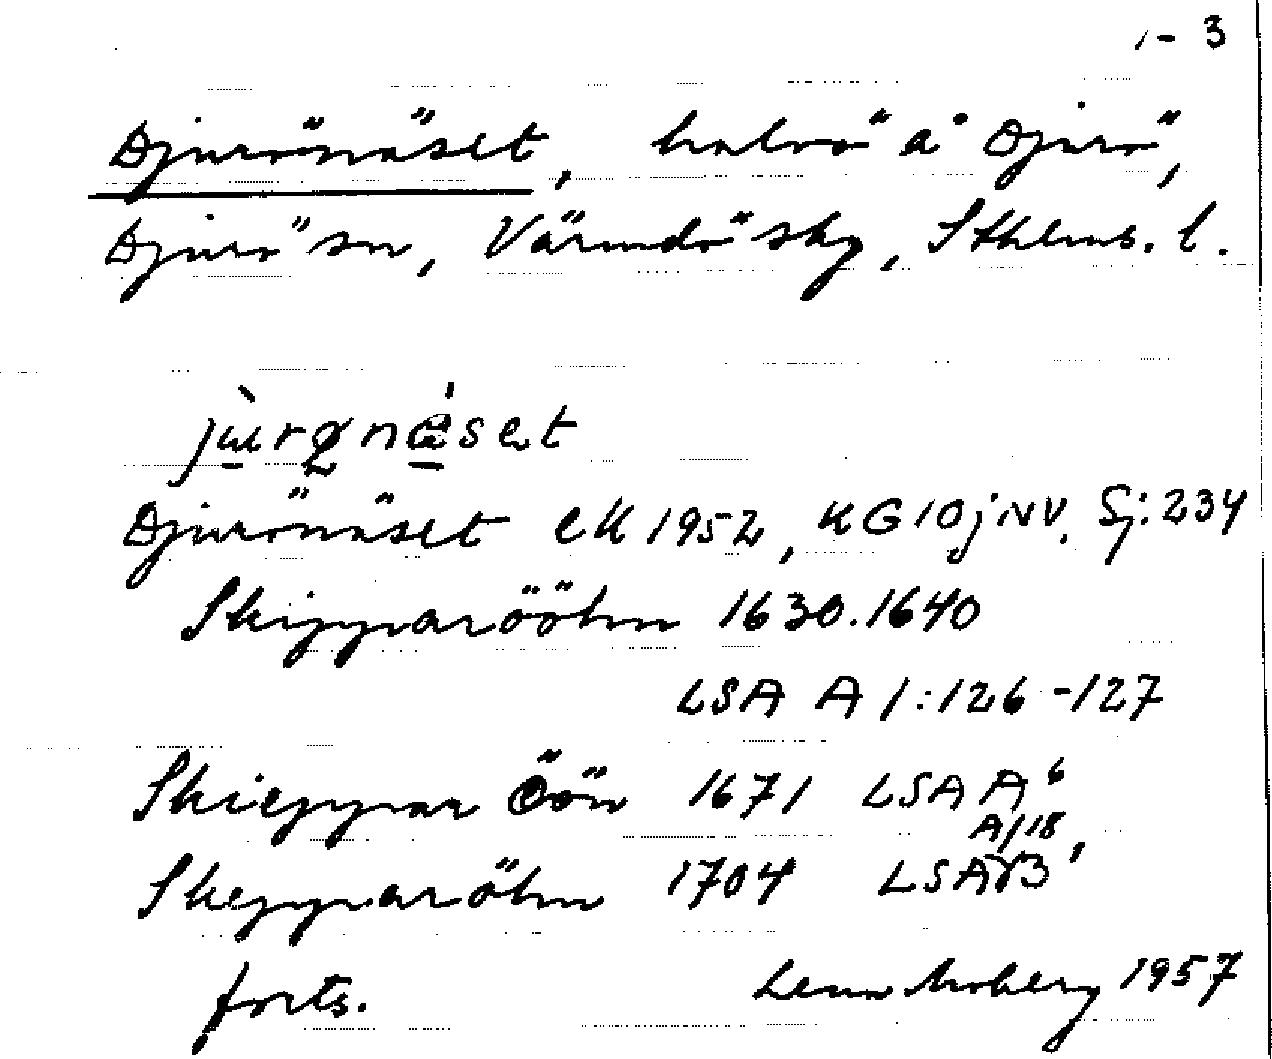 1-3
Djurönäset, halvö å Djurö,
Djurö sn, Värmdö sky, Sthlms. l.
jùrǫnǽset
Djurönäset EK 1952, KG 10j NV, Sj: 234
Skipparööhn 1630. 1640
LSA A 1:126-127
Skieppar Öön 1671 LSA A6
A118,
Skepparöhn 1704 LSA
forts. Lena Moberg 1957